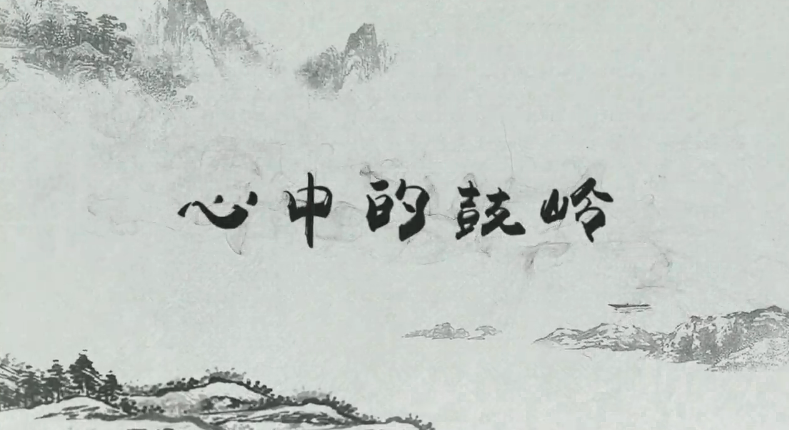 心中的鼓岭